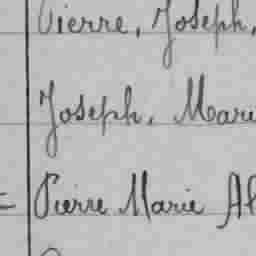 Pierre, Joseph,
Joseph, Marie
= Pierre Marie Al